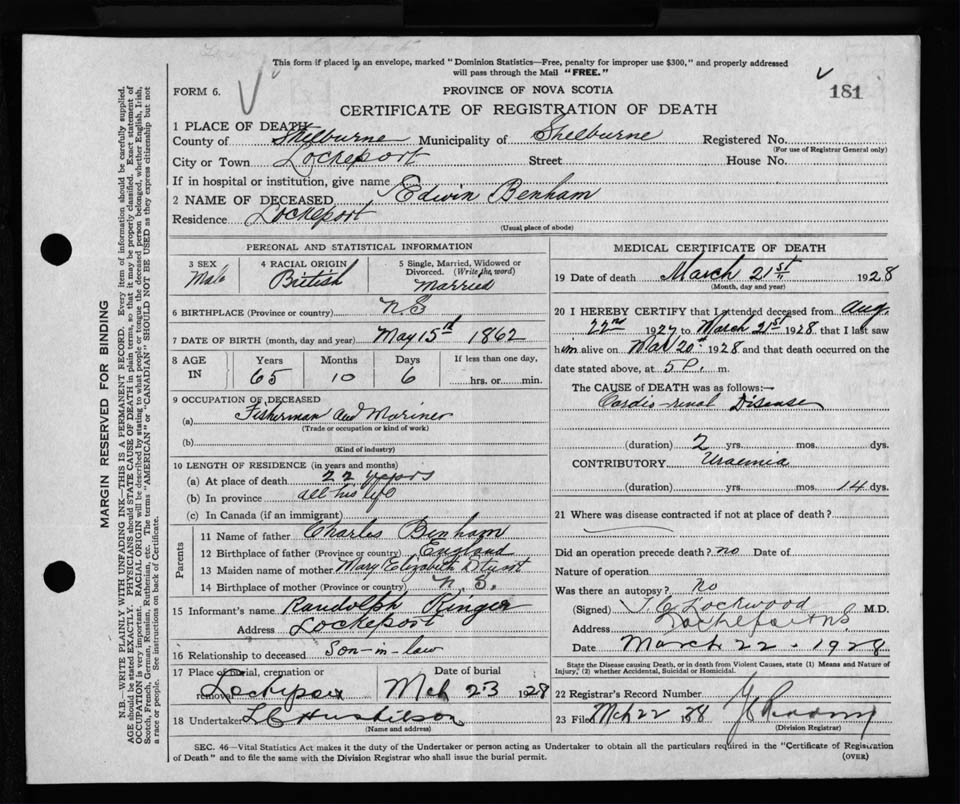 This form if placed in an envelope, marked "Dominion Statistics—Free, penalty for improper use $300," and properly addressed
will pass through the Mail "FREE."
FORM 6.
PROVINCE OF NOVA SCOTIA
181
CERTIFICATE OF REGISTRATION OF DEATH
1 PLACE OF DEATH
County of Shelburne Municipality of Shelburne Registered No.
(For use of Registrar General only)
City or Town Lockeport Street House No.
If in hospital or institution, give name
2 NAME OF DECEASED Edwin Benham
Residence Lockeport
(Usual place of abode)
PERSONAL AND STATISTICAL INFORMATION
3 SEX Male
4 RACIAL ORIGIN British
5 Single, Married, Widowed or Divorced. (Write the word) Married
6 BIRTHPLACE (Province or country) N.S
7 DATE OF BIRTH (month, day and year) May 15th 1862
8 AGE IN Years 65 Months 10 Days 6 If less than one day, hrs. or min.
9 OCCUPATION OF DECEASED
(a) Fisherman and Mariner
(Trade or occupation or kind of work)
(b)
(Kind of industry)
10 LENGTH OF RESIDENCE (in years and months)
(a) At place of death 22 years
(b) In province all his life
(c) In Canada (if an immigrant)
Parents
11 Name of father Charles Benham
12 Birthplace of father (Province or country) England
13 Maiden name of mother Mary Elizabeth
14 Birthplace of mother (Province or country) N.S.
15 Informant's name Randolph Ringer
Address Lockeport
16 Relationship to deceased Son-in-law
17 Place of burial, cremation or removal Lockeport Date of burial Mch 23 1928
18 Undertaker
(Name and address)
MEDICAL CERTIFICATE OF DEATH
19 Date of death March 21st 1928
(Month, day and year)
20 I HEREBY CERTIFY that I attended deceased from Aug.
22nd 1927 to March 21st 1928 that I last saw
him alive on Mar 20th 1928 and that death occurred on the
date stated above, at 5 P. m.
The CAUSE of DEATH was as follows:—
Cardio-renal Disease
(duration) 2 yrs. mos. dys.
CONTRIBUTORY Uraemia
(duration) yrs. mos. 14 dys.
21 Where was disease contracted if not at place of death?
Did an operation precede death? no Date of
Nature of operation
Was there an autopsy? no
(Signed) Lockwood M.D.
Address Lockeport N.S.
Date March 22 - 1928
State the Disease causing Death, or in death from Violent Causes, state (1) Means and Nature of
Injury, (2) whether Accidental, Suicidal or Homicidal.
22 Registrar's Record Number
23 Filed Mch 22 1928
(Division Registrar)
SEC. 46—Vital Statistics Act makes it the duty of the Undertaker or person acting as Undertaker to obtain all the particulars required in the "Certificate of Registration
of Death" and to file the same with the Division Registrar who shall issue the burial permit.
(OVER)
MARGIN RESERVED FOR BINDING
N.B.—WRITE PLAINLY WITH UNFADING INK—THIS IS A PERMANENT RECORD. Every item of information should be carefully supplied.
AGE should be stated EXACTLY. PHYSICIANS should STATE CAUSE OF DEATH in plain terms, so that it may be properly classified. Exact statement of
OCCUPATION is very important. RACIAL ORIGIN will be described by stating to what people or tongue the deceased person belonged, whether English, Irish,
Scotch, French, German, Russian, Ruthenian, etc. The terms "AMERICAN" or "CANADIAN" SHOULD NOT BE USED as they express citizenship but not
a race or people. See instructions on back of Certificate.